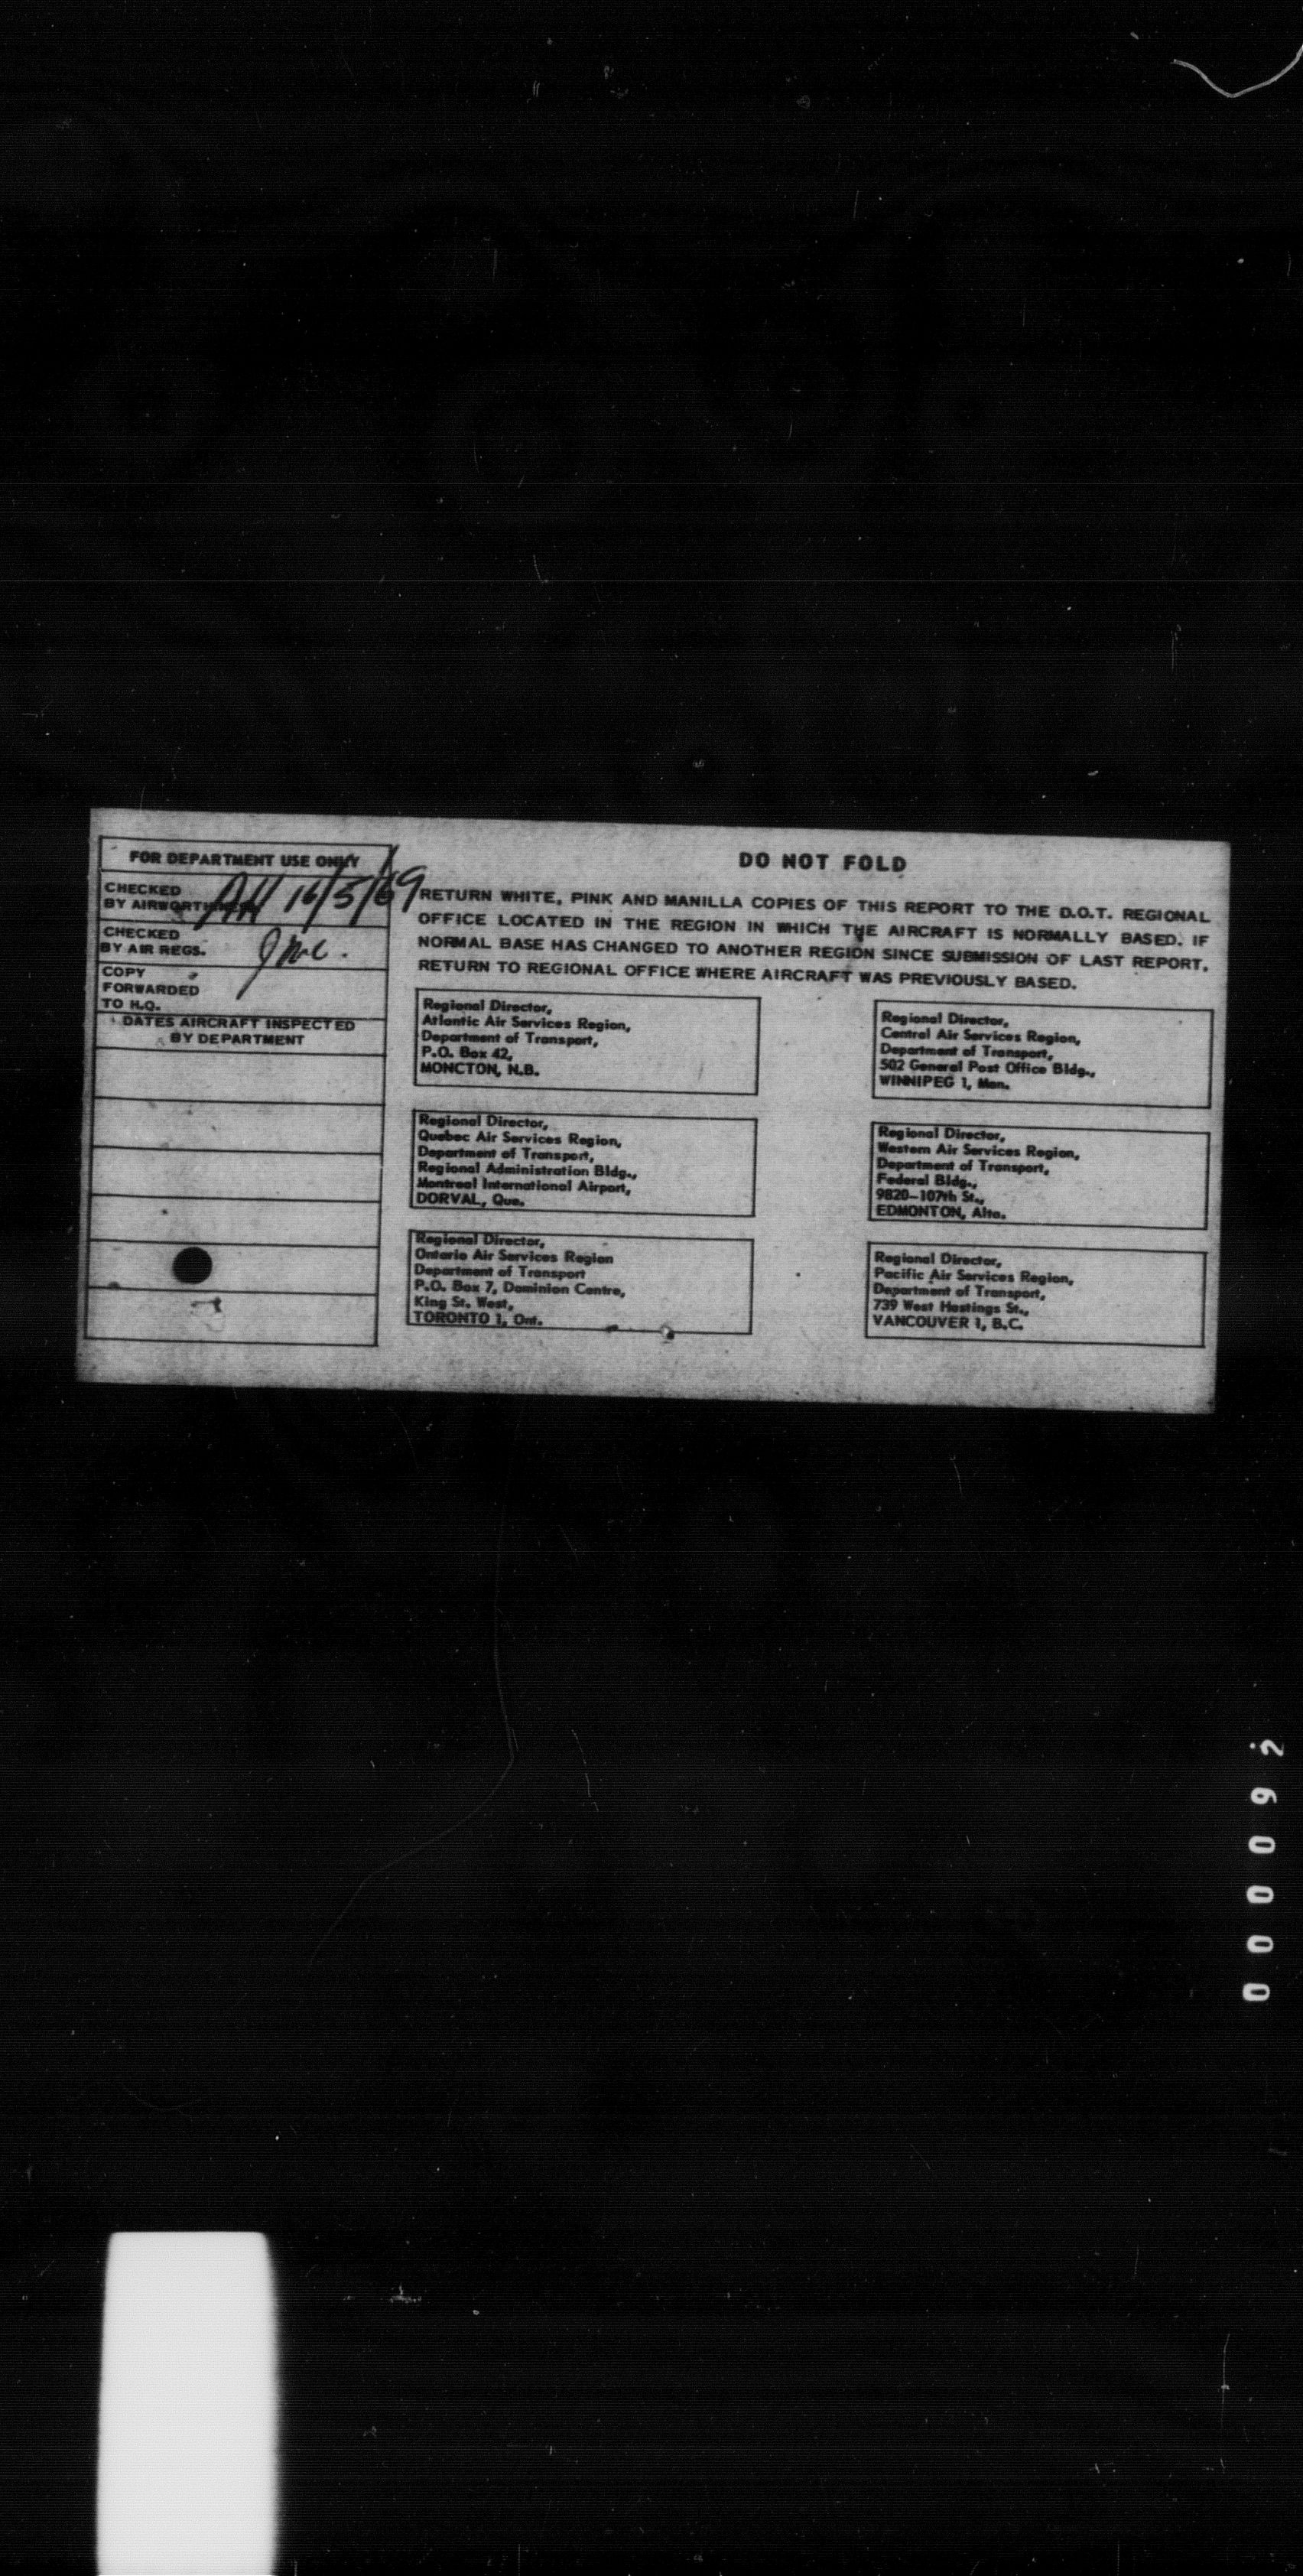 FOR DEPARTMENT USE ONLY
CHECKED
BY AIRWORTHINESS
AH 16/5/69
CHECKED
BY AIR REGS.
COPY
FORWARDED
TO H.Q.
DATES AIRCRAFT INSPECTED
BY DEPARTMENT
DO NOT FOLD
RETURN WHITE, PINK AND MANILLA COPIES OF THIS REPORT TO THE D.O.T. REGIONAL
OFFICE LOCATED IN THE REGION IN WHICH THE AIRCRAFT IS NORMALLY BASED. IF
NORMAL BASE HAS CHANGED TO ANOTHER REGION SINCE SUBMISSION OF LAST REPORT,
RETURN TO REGIONAL OFFICE WHERE AIRCRAFT WAS PREVIOUSLY BASED.
Regional Director,
Atlantic Air Services Region,
Department of Transport,
P.O. Box 42,
MONCTON, N.B.
Regional Director,
Quebec Air Services Region,
Department of Transport,
Regional Administration Bldg.,
Montreal International Airport,
DORVAL, Que.
Regional Director,
Ontario Air Services Region
Department of Transport
P.O. Box 7, Dominion Centre,
King St. West,
TORONTO 1, Ont.
Regional Director,
Central Air Services Region,
Department of Transport,
502 General Post Office Bldg.,
WINNIPEG 1, Man.
Regional Director,
Western Air Services Region,
Department of Transport,
Federal Bldg.,
9820-107th St.,
EDMONTON, Alta.
Regional Director,
Pacific Air Services Region,
Department of Transport,
739 West Hastings St.,
VANCOUVER 1, B.C.
000092